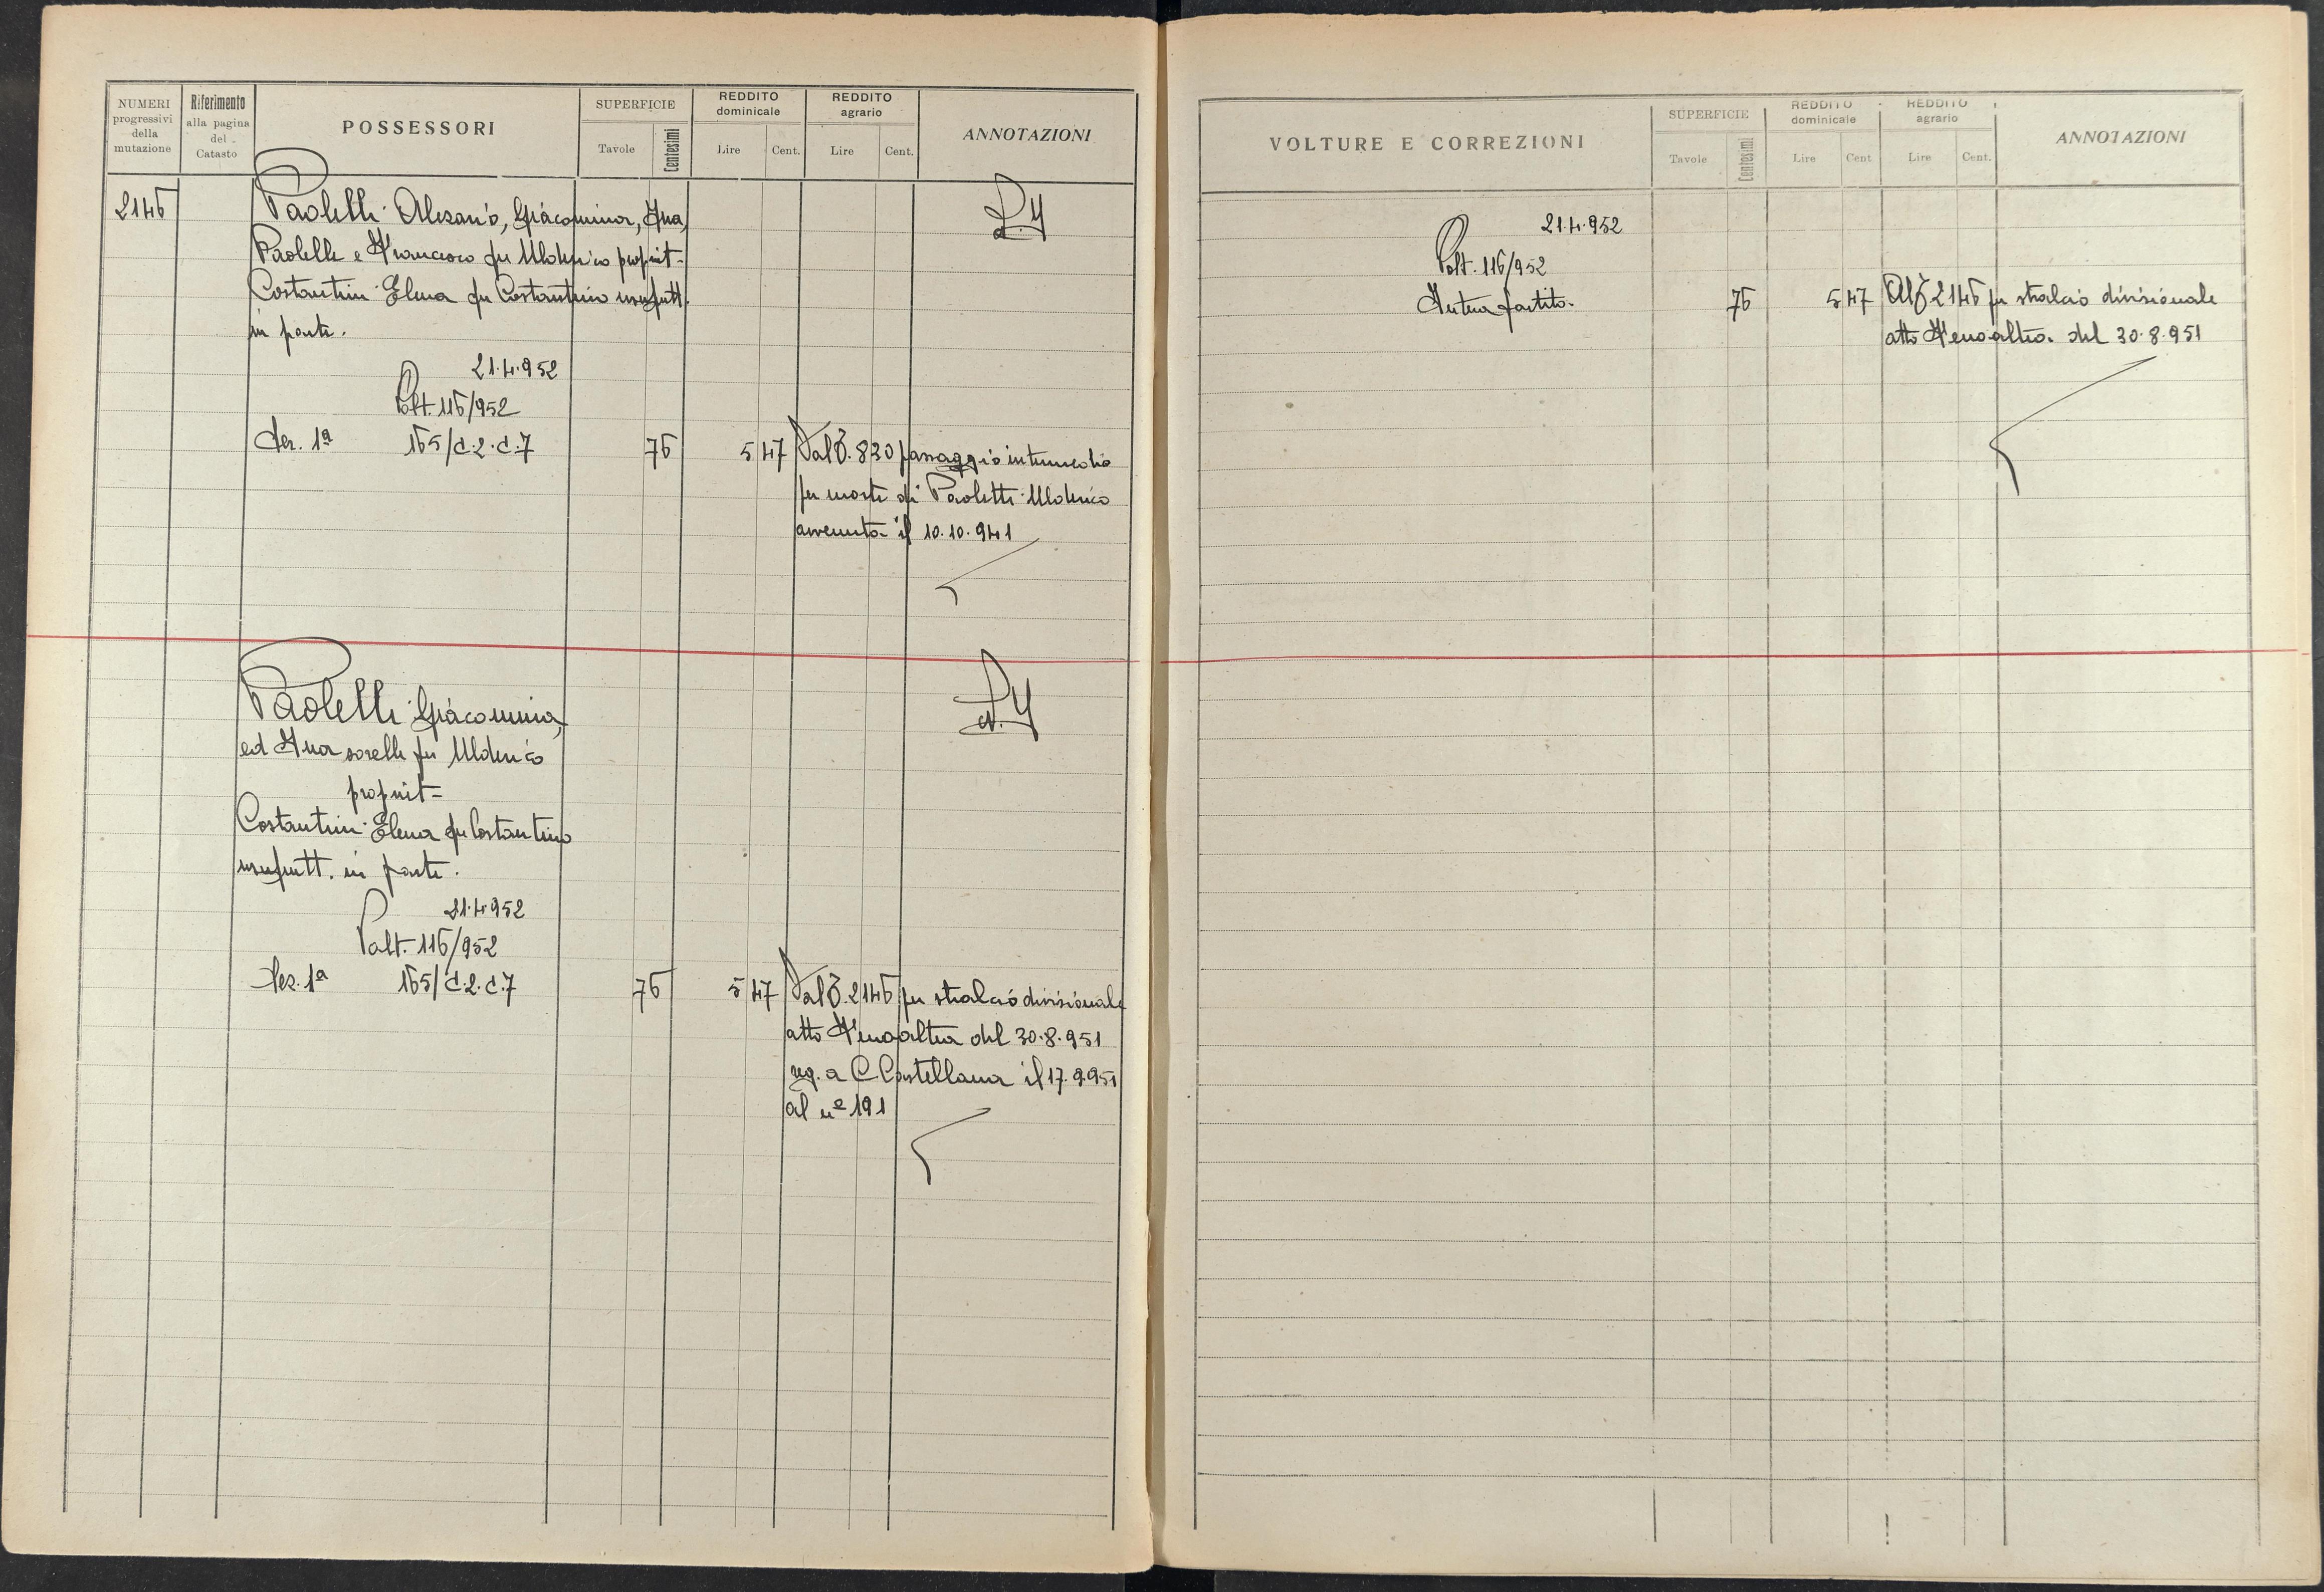 NUMERI
progressivi
della
mutazione
Riferimento
alla pagina
del
Catasto
POSSESSORI
SUPERFICIE
Tavole
Centesimi
REDDITO
dominicale
Lire
Cent.
REDDITO
agrario
Lire
Cent.
ANNOTAZIONI
2146
Paoletti Alesanio, Giacomina, Ina,
Paoletti e Francesco fu Ulderico propriet-
Costantini Elena fu Costantino usufrutt.
in parte.
21.4.952
Volt. 116/952
Sez. 1ª 165/C.2.C.7 76 5 47 Dal P. 830 passaggio intermedio
per morte di Paoletti Ulderico
avvenuta il 10.10.941
Paoletti Giacomina,
ed Ina sorelle fu Ulderico
propriet-
Costantini Elena fu Costantino
usufrutt. in parte.
21.4.952
Volt. 116/952
Sez. 1ª 165/C.2.C.7 76 5 47 Dal P. 2146 per stralcio divisionale
atto del 30.8.951
reg. a C. Castellana il 17.9.951
al nº 191
VOLTURE E CORREZIONI
SUPERFICIE
Tavole
Centesimi
REDDITO
dominicale
Lire
Cent
REDDITO
agrario
Lire
Cent.
ANNOTAZIONI
21.4.952
Volt. 116/952
Intera partita. 76 5 47 Al P. 2146 per stralcio divisionale
atto del 30.8.951